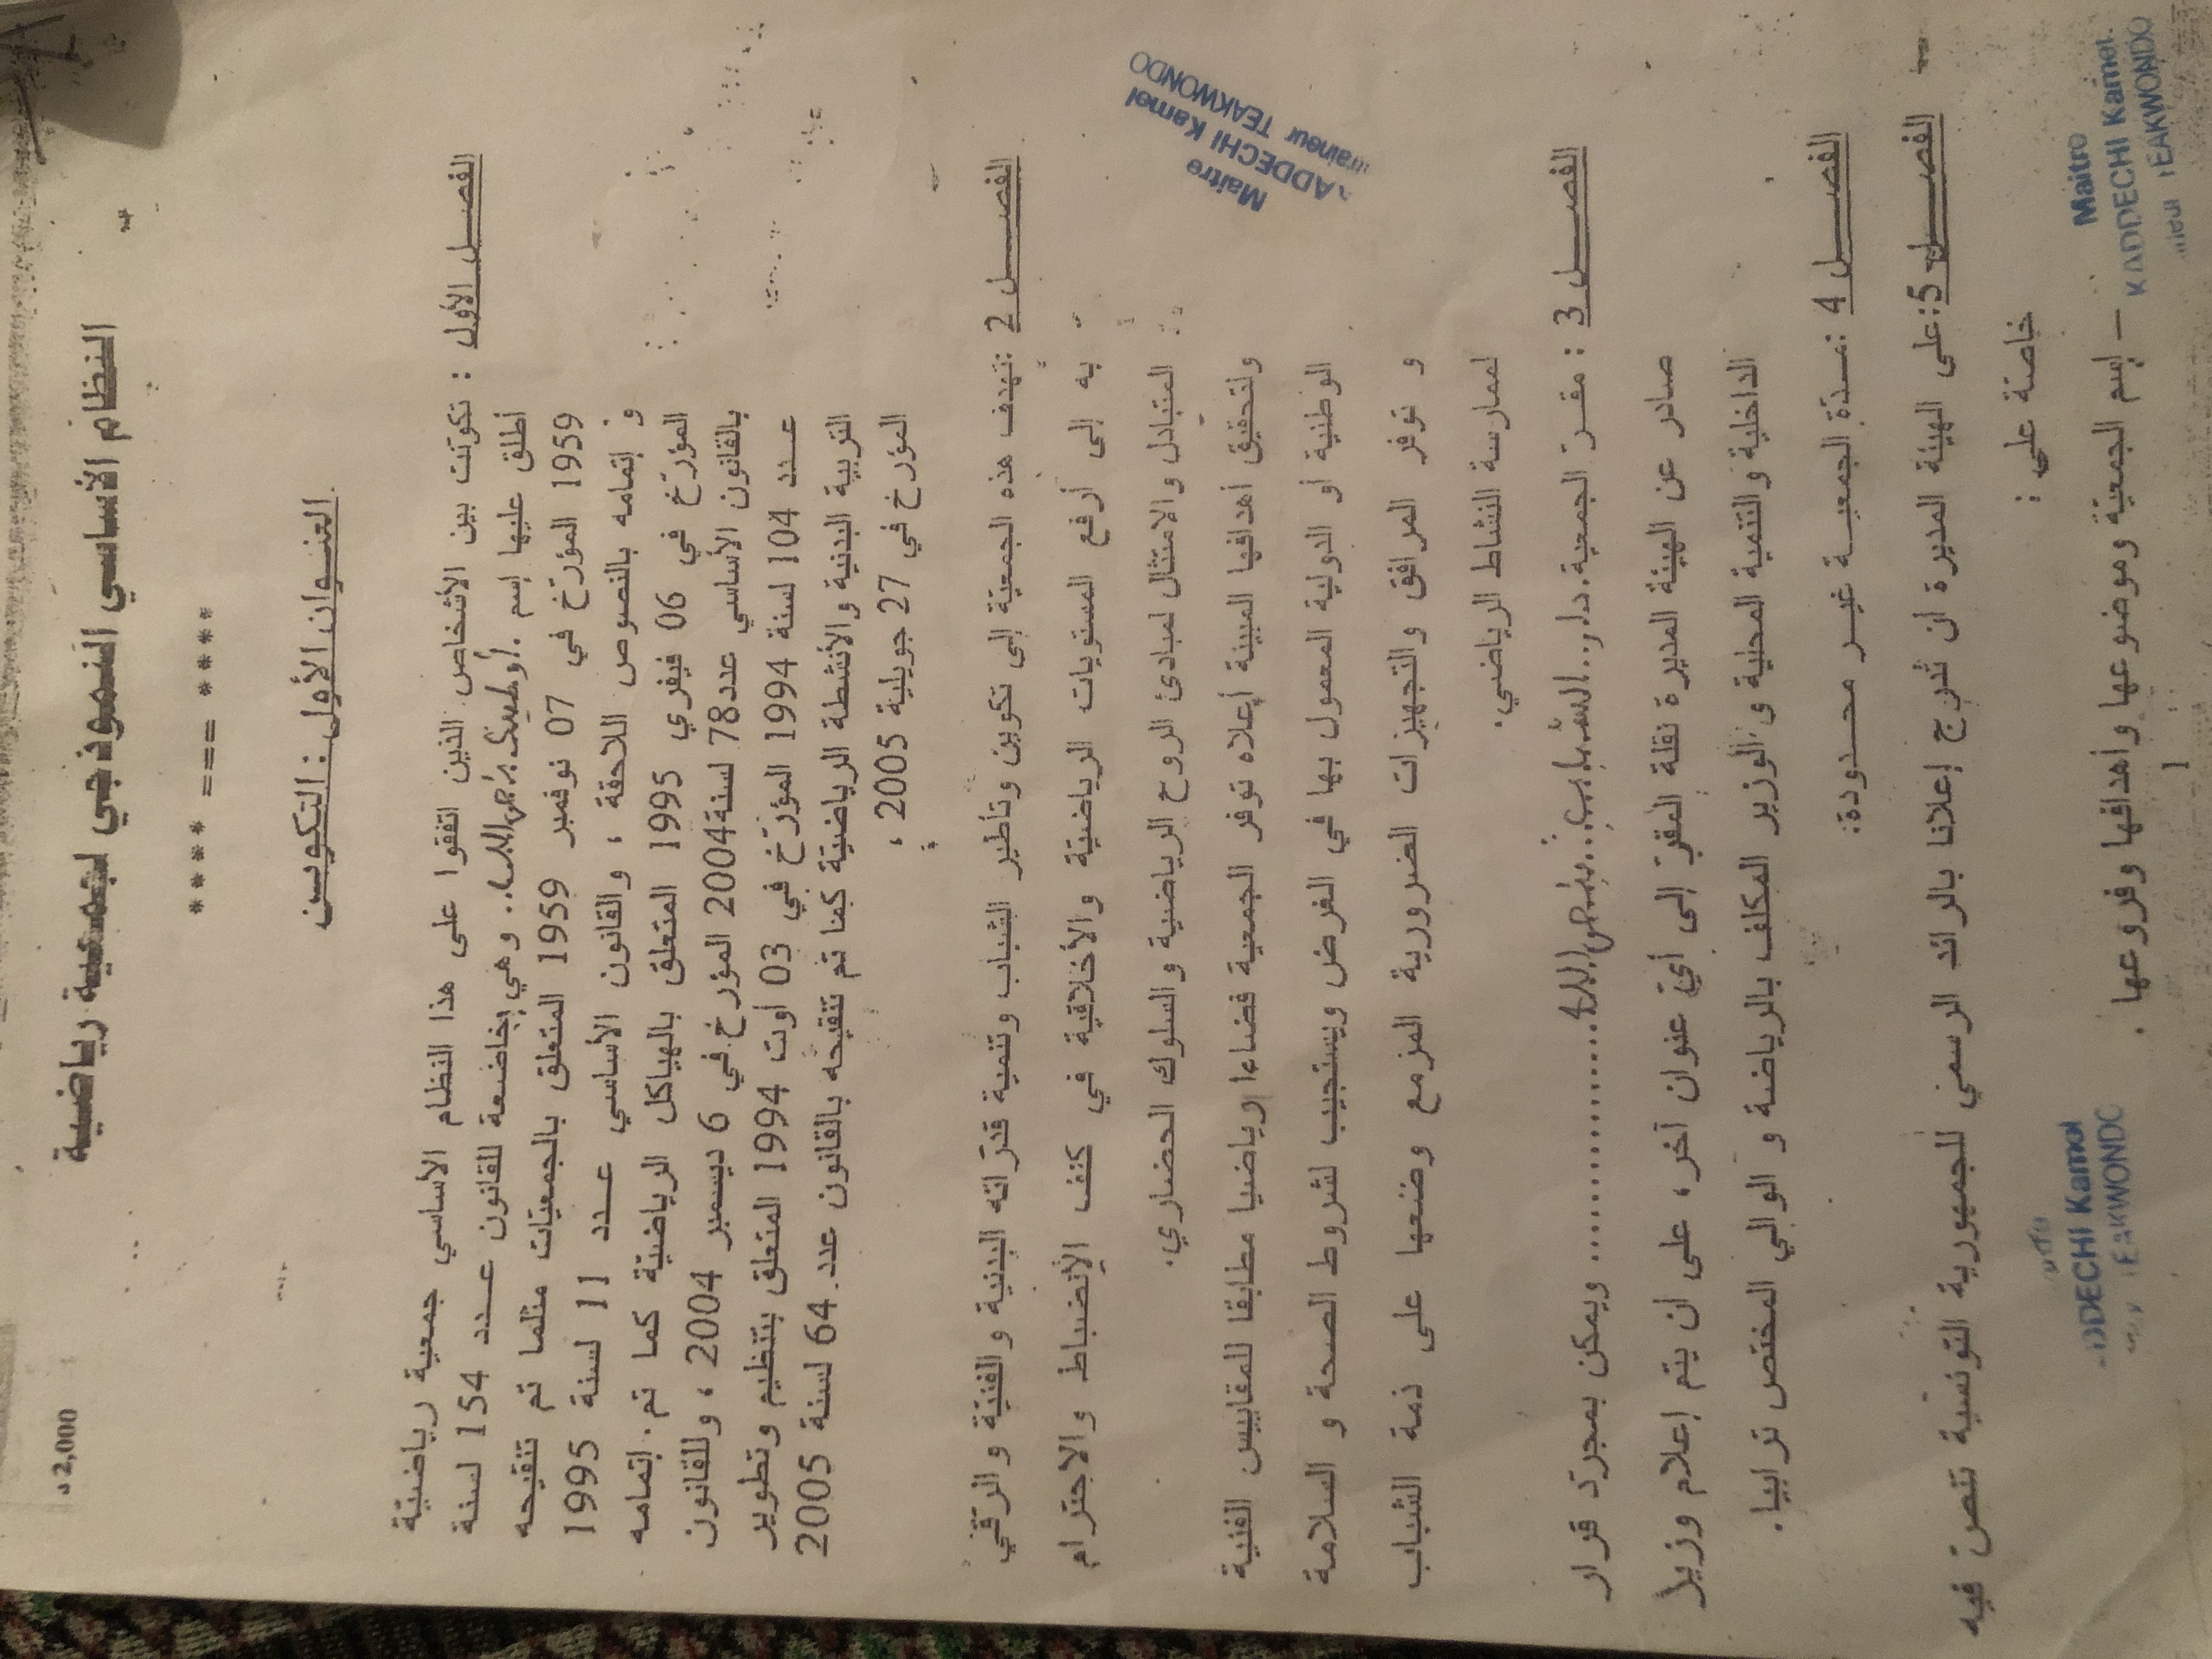 2,000 د
النظام الأساسي النموذجي لجمعية رياضية
**** === ****
العنـوان الأول : التكويـن
الفصـــل الأول : تكونت بين الأشخاص الذين اتفقوا على هذا النظام الأساسي جمعية رياضيّة
أطلق عليها إسم . أولمبيك . وهي خاضعة للقانون عـــدد 154 لسنة
1959 المؤرّخ في 07 نوفمبر 1959 المتعلق بالجمعيّات مثلما تم تنقيحه
و إتمامه بالنصوص اللاحقة ، والقانون الأساسي عـــدد 11 لسنة 1995
المؤرّخ في 06 فيفري 1995 المتعلق بالهياكل الرياضيّة كما تم إتمامه
بالقانون الأساسي عدد78 لسنة2004 المؤرخ في 6 ديسمبر 2004 ، وللقانون
عـــدد 104 لسنة 1994 المؤرّخ في 03 أوت 1994 المتعلق بتنظيم وتطوير
التربية البدنية والأنشطة الرياضيّة كما تم تنقيحه بالقانون عدد 64 لسنة 2005
المؤرخ في 27 جويلية 2005 ،
الفصـــل 2 :تهدف هذه الجمعيّة إلى تكوين وتأطير الشباب وتنمية قدراته البدنية والفنيّة والرقي
به إلى أرفع المستويات الرياضيّة والأخلاقية في كنف الإنضباط والاحترام
المتبادل والامتثال لمبادئ الروح الرياضية والسلوك الحضاري.
ولتحقيق أهدافها المبينة أعلاه توفر الجمعية فضاءا رياضيا مطابقا للمقاييس الفنية
الوطنية أو الدولية المعمول بها في الغرض ويستجيب لشروط الصحة و السلامة
و توفر المرافق والتجهيزات الضرورية المزمع وضعها على ذمة الشباب
لممارسة النشاط الرياضي.
الفصـــل 3 : مقـر الجمعية. دار الشباب ويمكن بمجرّد قرار
صادر عن الهيئة المديرة نقلة المقر إلى أيّ عنوان آخر، على أن يتم إعلام وزير
الداخلية والتنمية المحلية و الوزير المكلف بالرياضة و الوالي المختص ترابيا.
الفصـــل 4 :مـدّة الجمعيـــة غيـر محـدودة:
الفصـــل 5 :على الهيئة المديرة ان تدرج إعلانا بالرائد الرسمي للجمهورية التونسية تنصّ فيه
خاصة على :
– إسم الجمعيّة وموضوعها وأهدافها وفروعها .
1
Maitre
ADDECHI Kamel
TEAKWONDO
Maitro
KADDECHI Kamel
TEAKWONDO
DDECHI Kamal
EAKWONDO